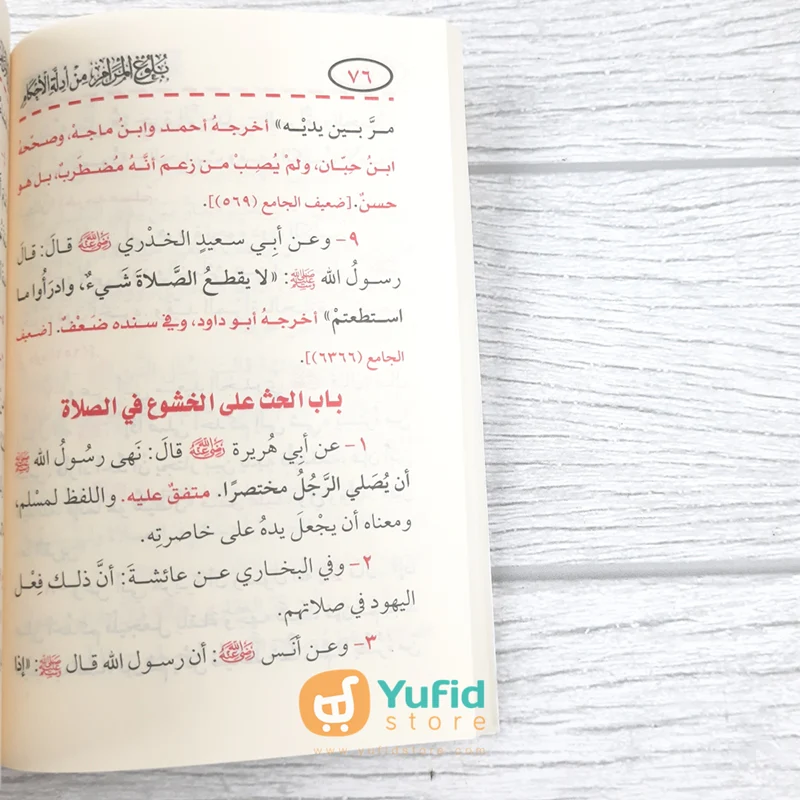 بلوغ المرام من أدلة الأحكام
٧٦
مرَّ بين يديْه» أخرجهُ أحمد وابنُ ماجهْ، وصححهُ
ابنُ حبَّان، ولمْ يُصِبْ من زعمَ أنَّهُ مُضطربٌ، بل هو
حسنٌ. [ضعيف الجامع (٥٦٩)].
٩- وعن أبِي سعيدٍ الخدْري ﵁ قالَ: قالَ
رسولُ الله ﷺ: «لا يقطعُ الصَّلاةَ شَيءٌ، وادرَأُوا ما
استطعتمْ» أخرجهُ أبو داود، وفي سنده ضَعْفٌ. [ضعيف
الجامع (٦٣٦٦)].
باب الحث على الخشوع في الصلاة
١- عن أبِي هُريرة ﵁ قالَ: نَهى رسُولُ الله ﷺ
أن يُصَلي الرَّجُلُ مختصرًا. متفقٌ عليه. واللفظ لمسْلم،
ومعناه أن يجْعلَ يدهُ على خاصرتِه.
٢- وفي البخاري عن عائشةَ: أنَّ ذلك فِعْل
اليهود في صلاتهم.
٣- وعن أنَس ﵁: أن رسول الله قال ﷺ: «إذا
Yufid
store
www.yufidstore.com